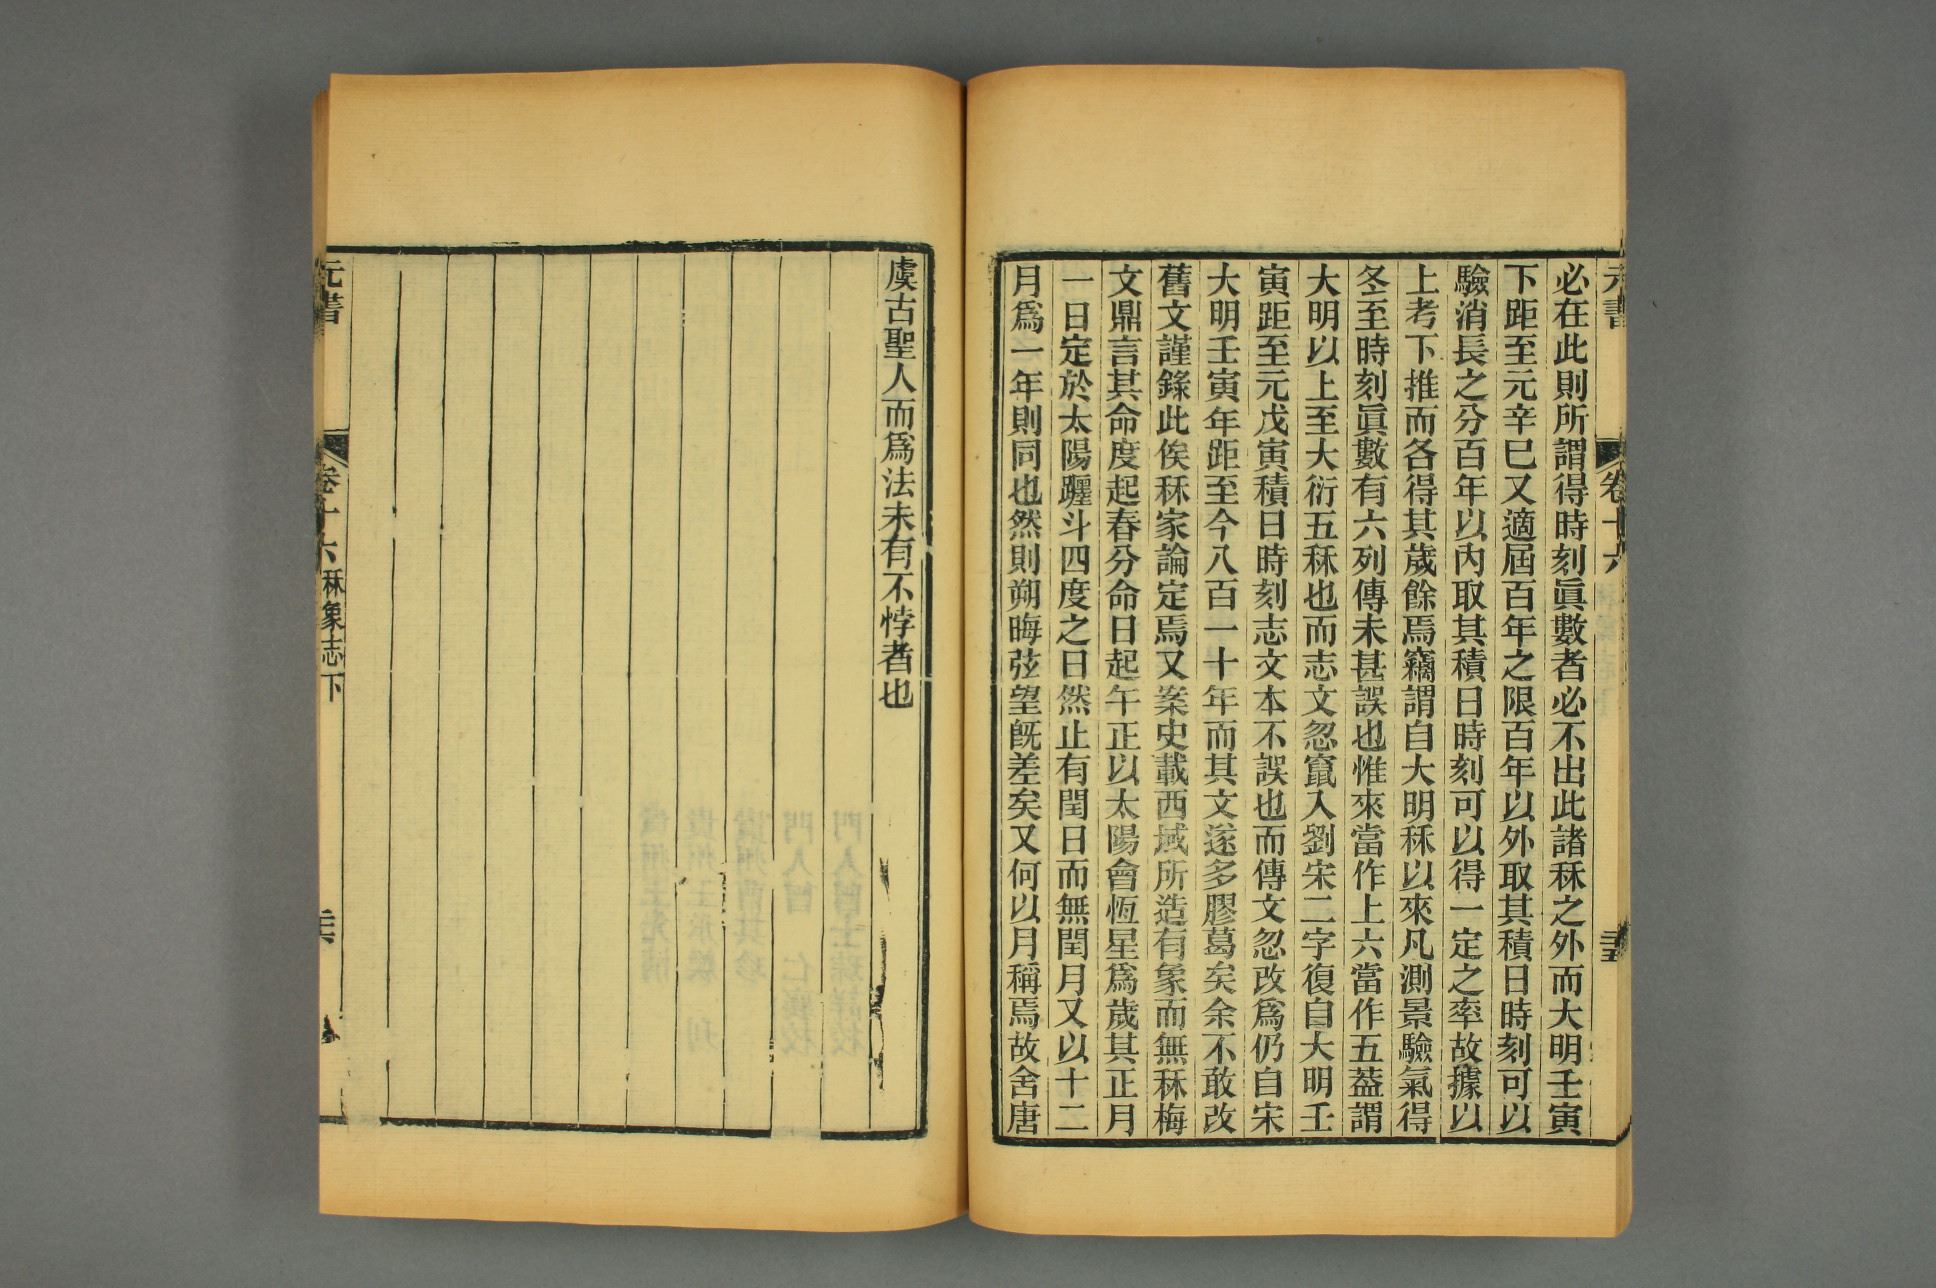 元書
卷十六
二十五
必在此則所謂得時刻眞數者必不出此諸秝之外而大明壬寅
下距至元辛巳又適屆百年之限百年以外取其積日時刻可以
驗消長之分百年以內取其積日時刻可以得一定之率故據以
上考下推而各得其歲餘焉竊謂自大明秝以來凡測景驗氣得
冬至時刻眞數有六列傳未甚誤也惟來當作上六當作五蓋謂
大明以上至大衍五秝也而志文忽竄入劉宋二字復自大明壬
寅距至元戊寅積日時刻志文本不誤也而傳文忽改爲仍自宋
大明壬寅年距至今八百一十年而其文遂多膠葛矣余不敢改
舊文謹錄此俟秝家論定焉又案史載西域所造有象而無秝梅
文鼎言其命度起春分命日起午正以太陽會恆星爲歲其正月
一日定於太陽躔斗四度之日然止有閏日而無閏月又以十二
月爲一年則同也然則朔晦弦望旣差矣又何以月稱焉故舍唐
虞古聖人而爲法未有不悖者也
元書
卷十六秝象志下